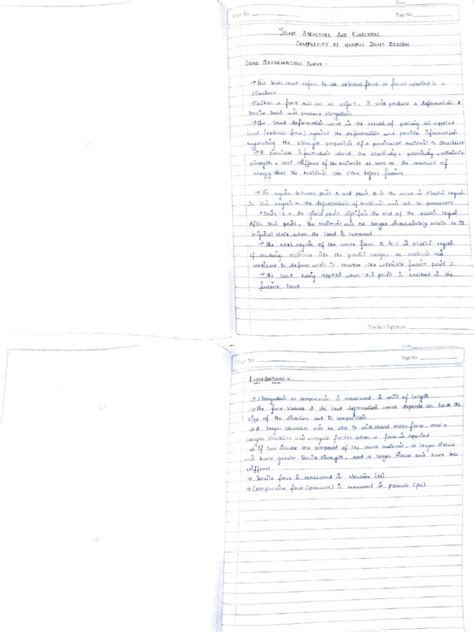 Page No.
Date
Page No.
JOINT STRUCTURE AND FUNCTION
COMPLEXITY OF HUMAN JOINT DESIGN
LOAD DEFORMATION CURVE :
→ The term load refers to an external force or forces applied to a
structure
→ When a force acts on an object, it will produce a deformation. A
tensile load will produce elongation
→ The load deformation curve is the result of plotting an applied
load (external force) against the deformation and provides information
regarding the strength properties of a particular material or structure
→ It provides information about the elasticity, plasticity, ultimate
strength, and stiffness of the material as well as the amount of
energy that the material can store before failure
→ The region between point A and point B in the curve is elastic region
In this region, the deformation of material will not be permanent
Point B – the yield point signifies the end of the elastic region
After this point, the material will no longer immediately return to its
original state when the load is removed
→ the next region of the curve from B to C is plastic region
until it reaches the ultimate failure point C
→ the load being applied when this point is reached is the
failure load
Teacher's Signature
Page No.
Date
Page No.
→ Elongation or compression is measured in units of length
→ The force values of the load deformation curve depends on both the
size of the structure and its composition
→ A larger structure will be able to withstand more force, and a
longer structure will elongate further when a force is applied
→ If two tissues are composed of the same material, a larger tissue
will have greater tensile strength, and a longer tissue will have less
stiffness
→ Tensile force is measured in
→ Compressive force (pressure) is measured in pascals (Pa)